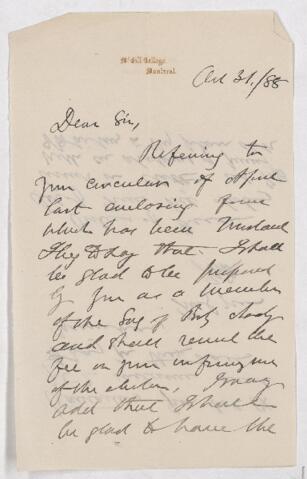 McGill College,
Montreal.
Oct 31./88
Dear Sir,
Refering to
your circular of April
last enclosing form
which has been
that I shall
be glad to be proposed
by you as a member
of the Soc of
and shall remit the
fee on your informing me
of the election. I may
add that I shall
be glad to have the